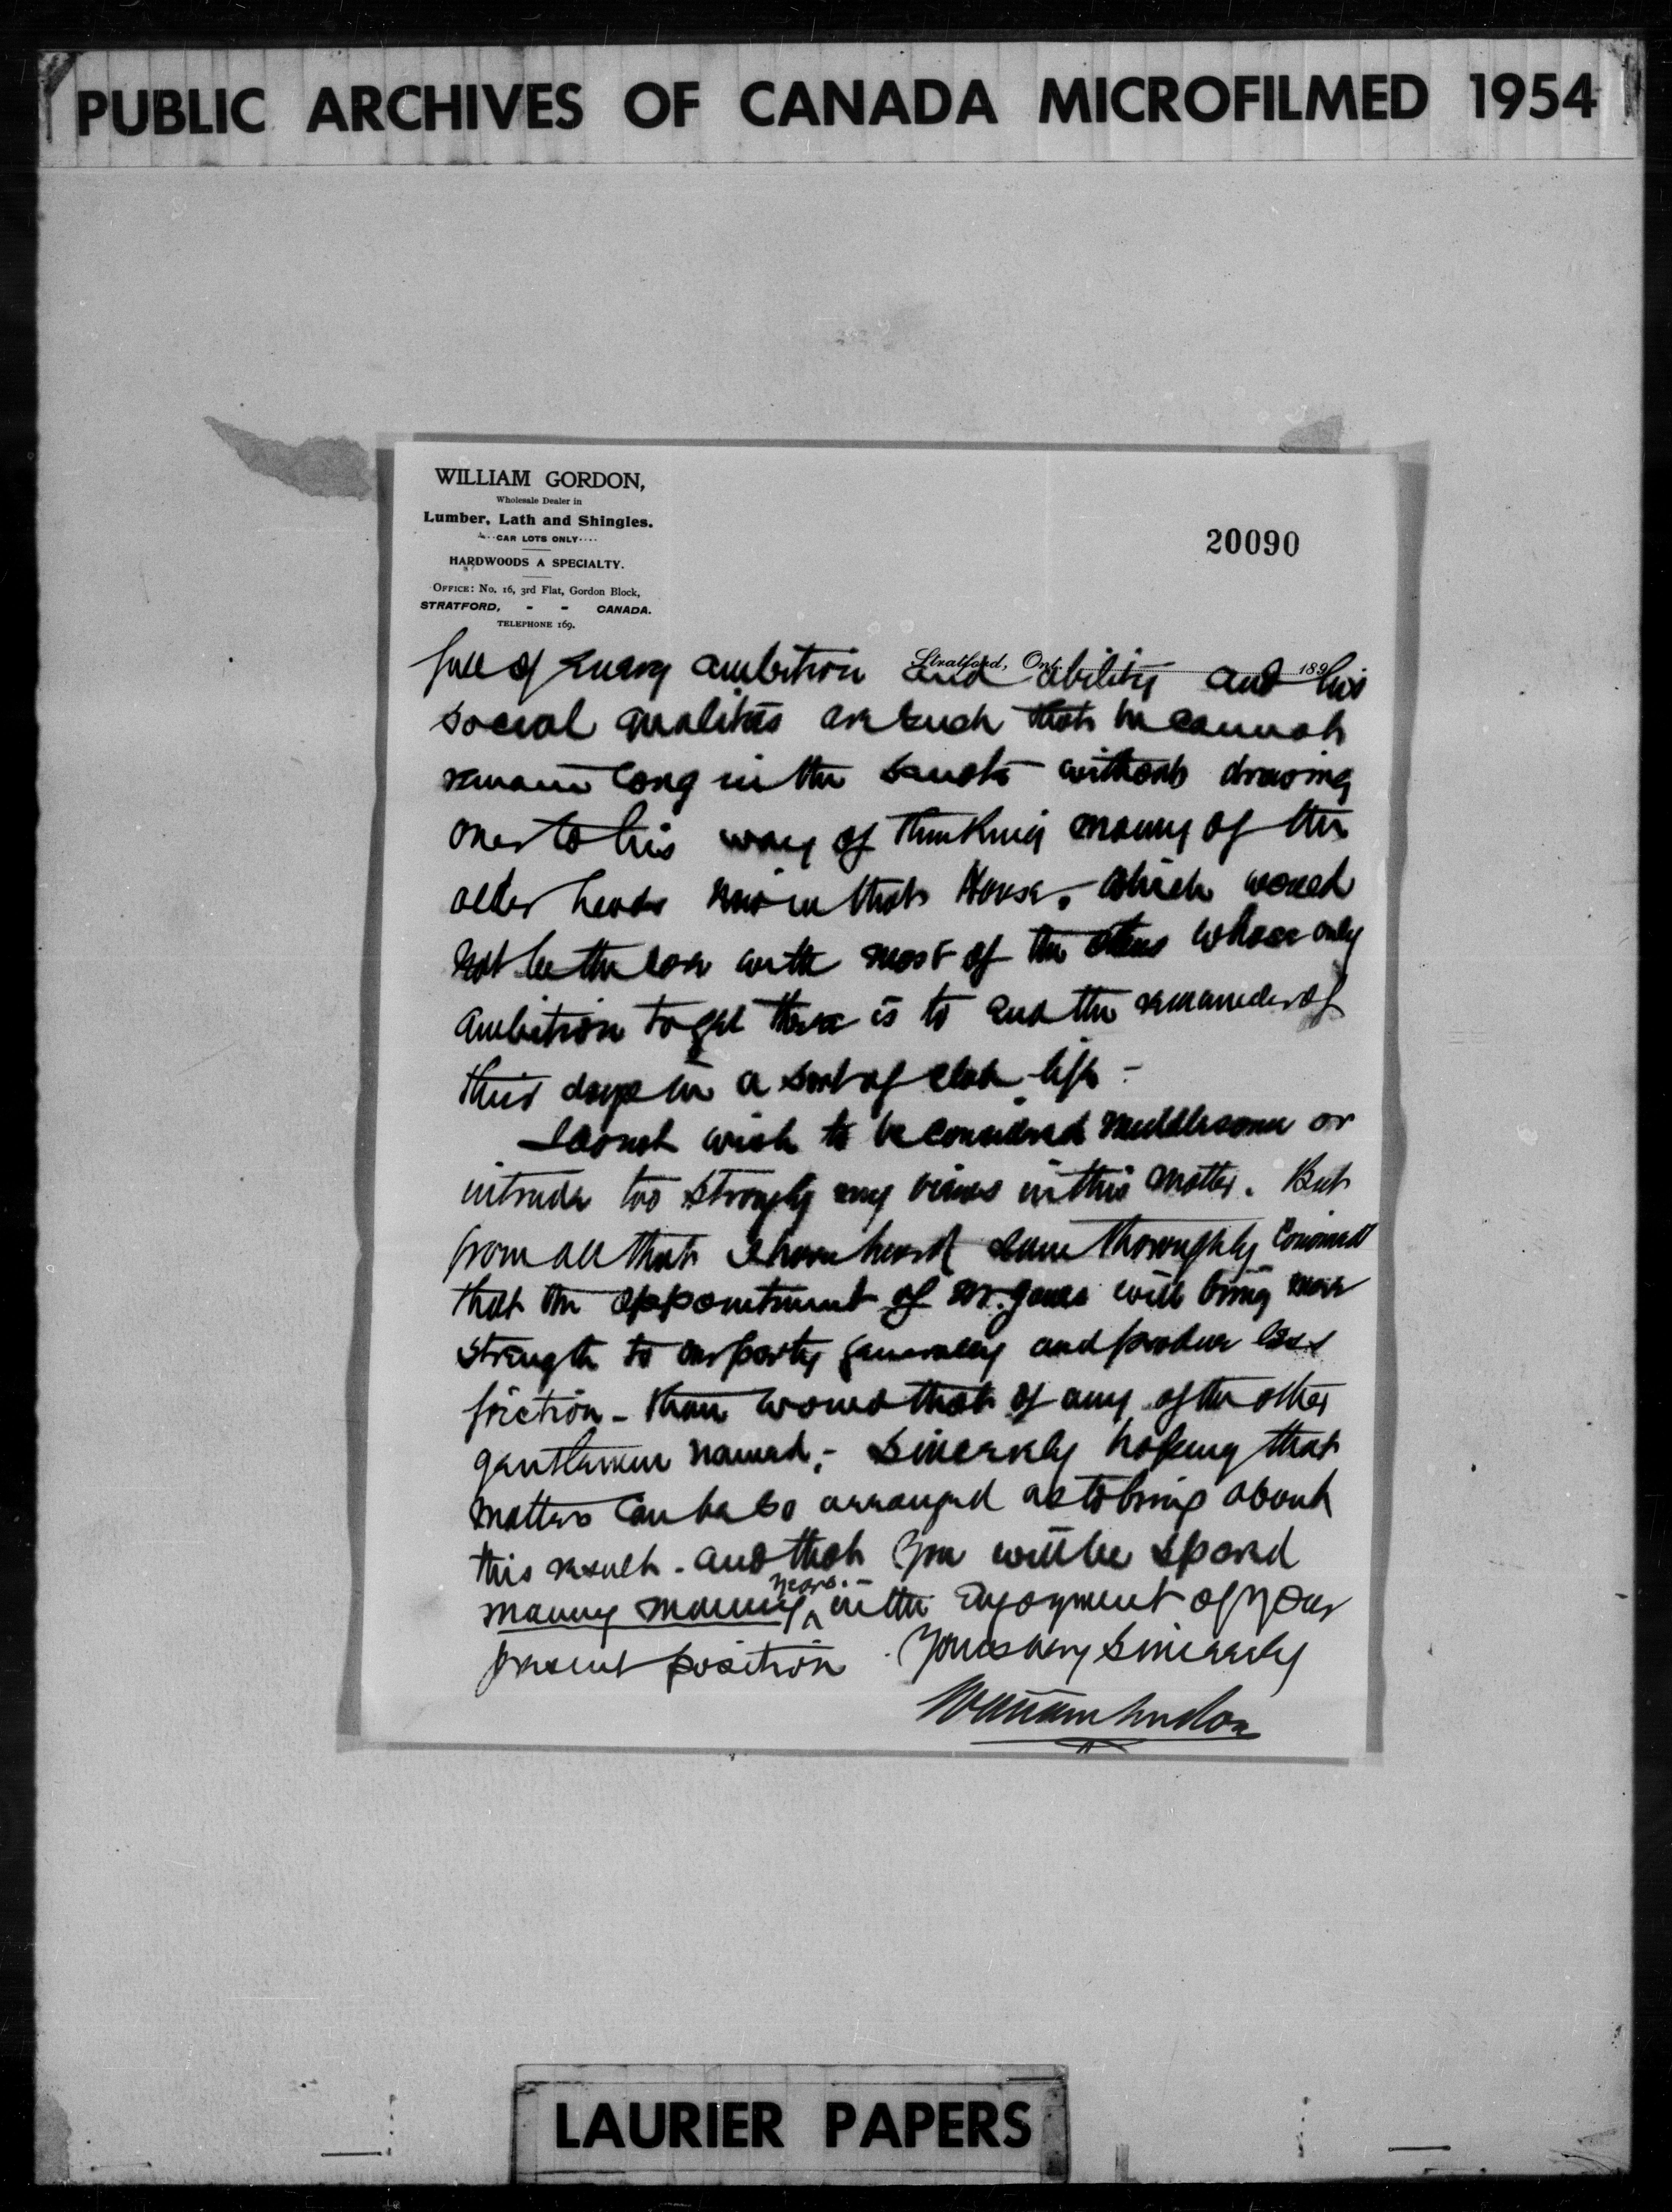 PUBLIC ARCHIVES OF CANADA MICROFILMED 1954
WILLIAM GORDON,
Wholesale Dealer in
Lumber, Lath and Shingles.
CAR LOTS ONLY
HARDWOODS A SPECIALTY.
OFFICE: No. 16, 3rd Flat, Gordon Block,
STRATFORD, - - CANADA.
TELEPHONE 169.
20090
Stratford, Ont. 189
full of Energy ambition and ability and his
social qualities are such that he cannot
remain long in the Senate without drawing
over to his way of thinking many of the
older heads now in that House. Which would
not be the case with most of the others whose only
ambition to get there is to end the remainder of
their days in a sort of club life -
I do not wish to be considered meddlesome or
intrude too strongly my views in this matter. But
from all that I have heard I am thoroughly convinced
that the appointment of Mr. Jones will bring more
strength to our party generally and produce less
friction - than would that of any of the other
gentlemen named; - Sincerely hoping that
matters can be so arranged as to bring about
this result - and that you will be spared
many many years. - in the Enjoyment of your
present position. Yours very Sincerely
William Gordon
LAURIER PAPERS